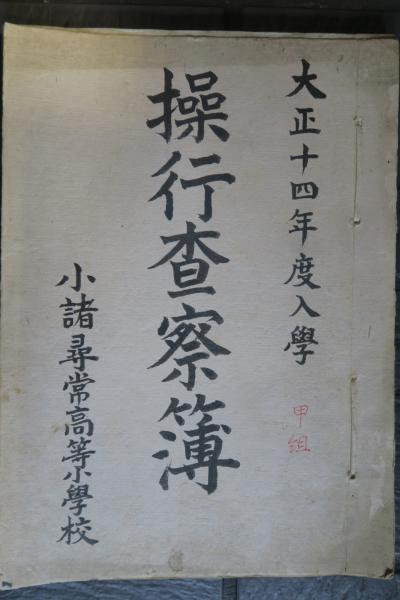 大正十四年度入學
甲組
操行査察簿
小諸尋常高等小學校